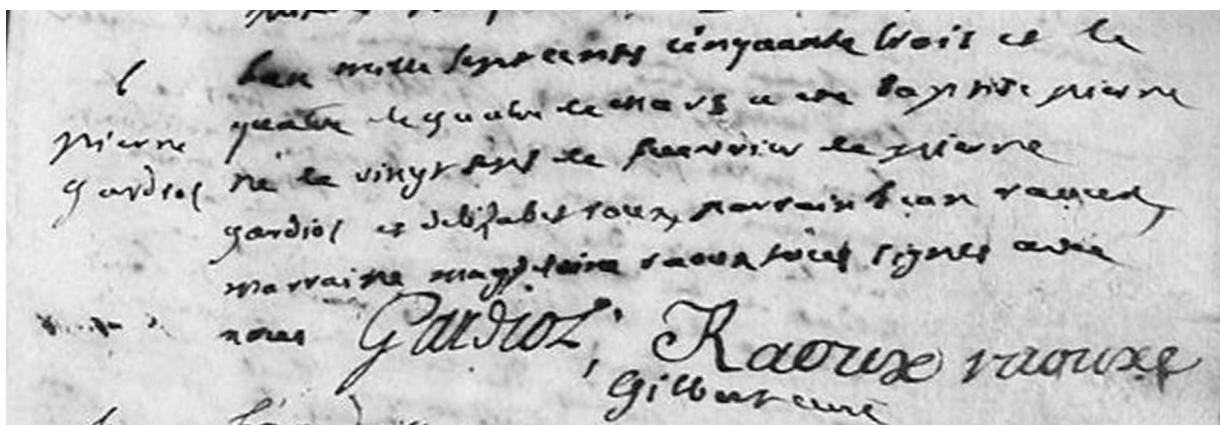 lan mille sept cents cinquante trois et le
quatre de mars a ete baptise pierre
pierre
gardiol
ne le vingt sept de feuvrier de pierre
gardiol et delisabet roux, parrain jean raoux,
marraine magdeleine raoux tous signes avec
nous Gardiol Raoux raouxe
Gilbert curé